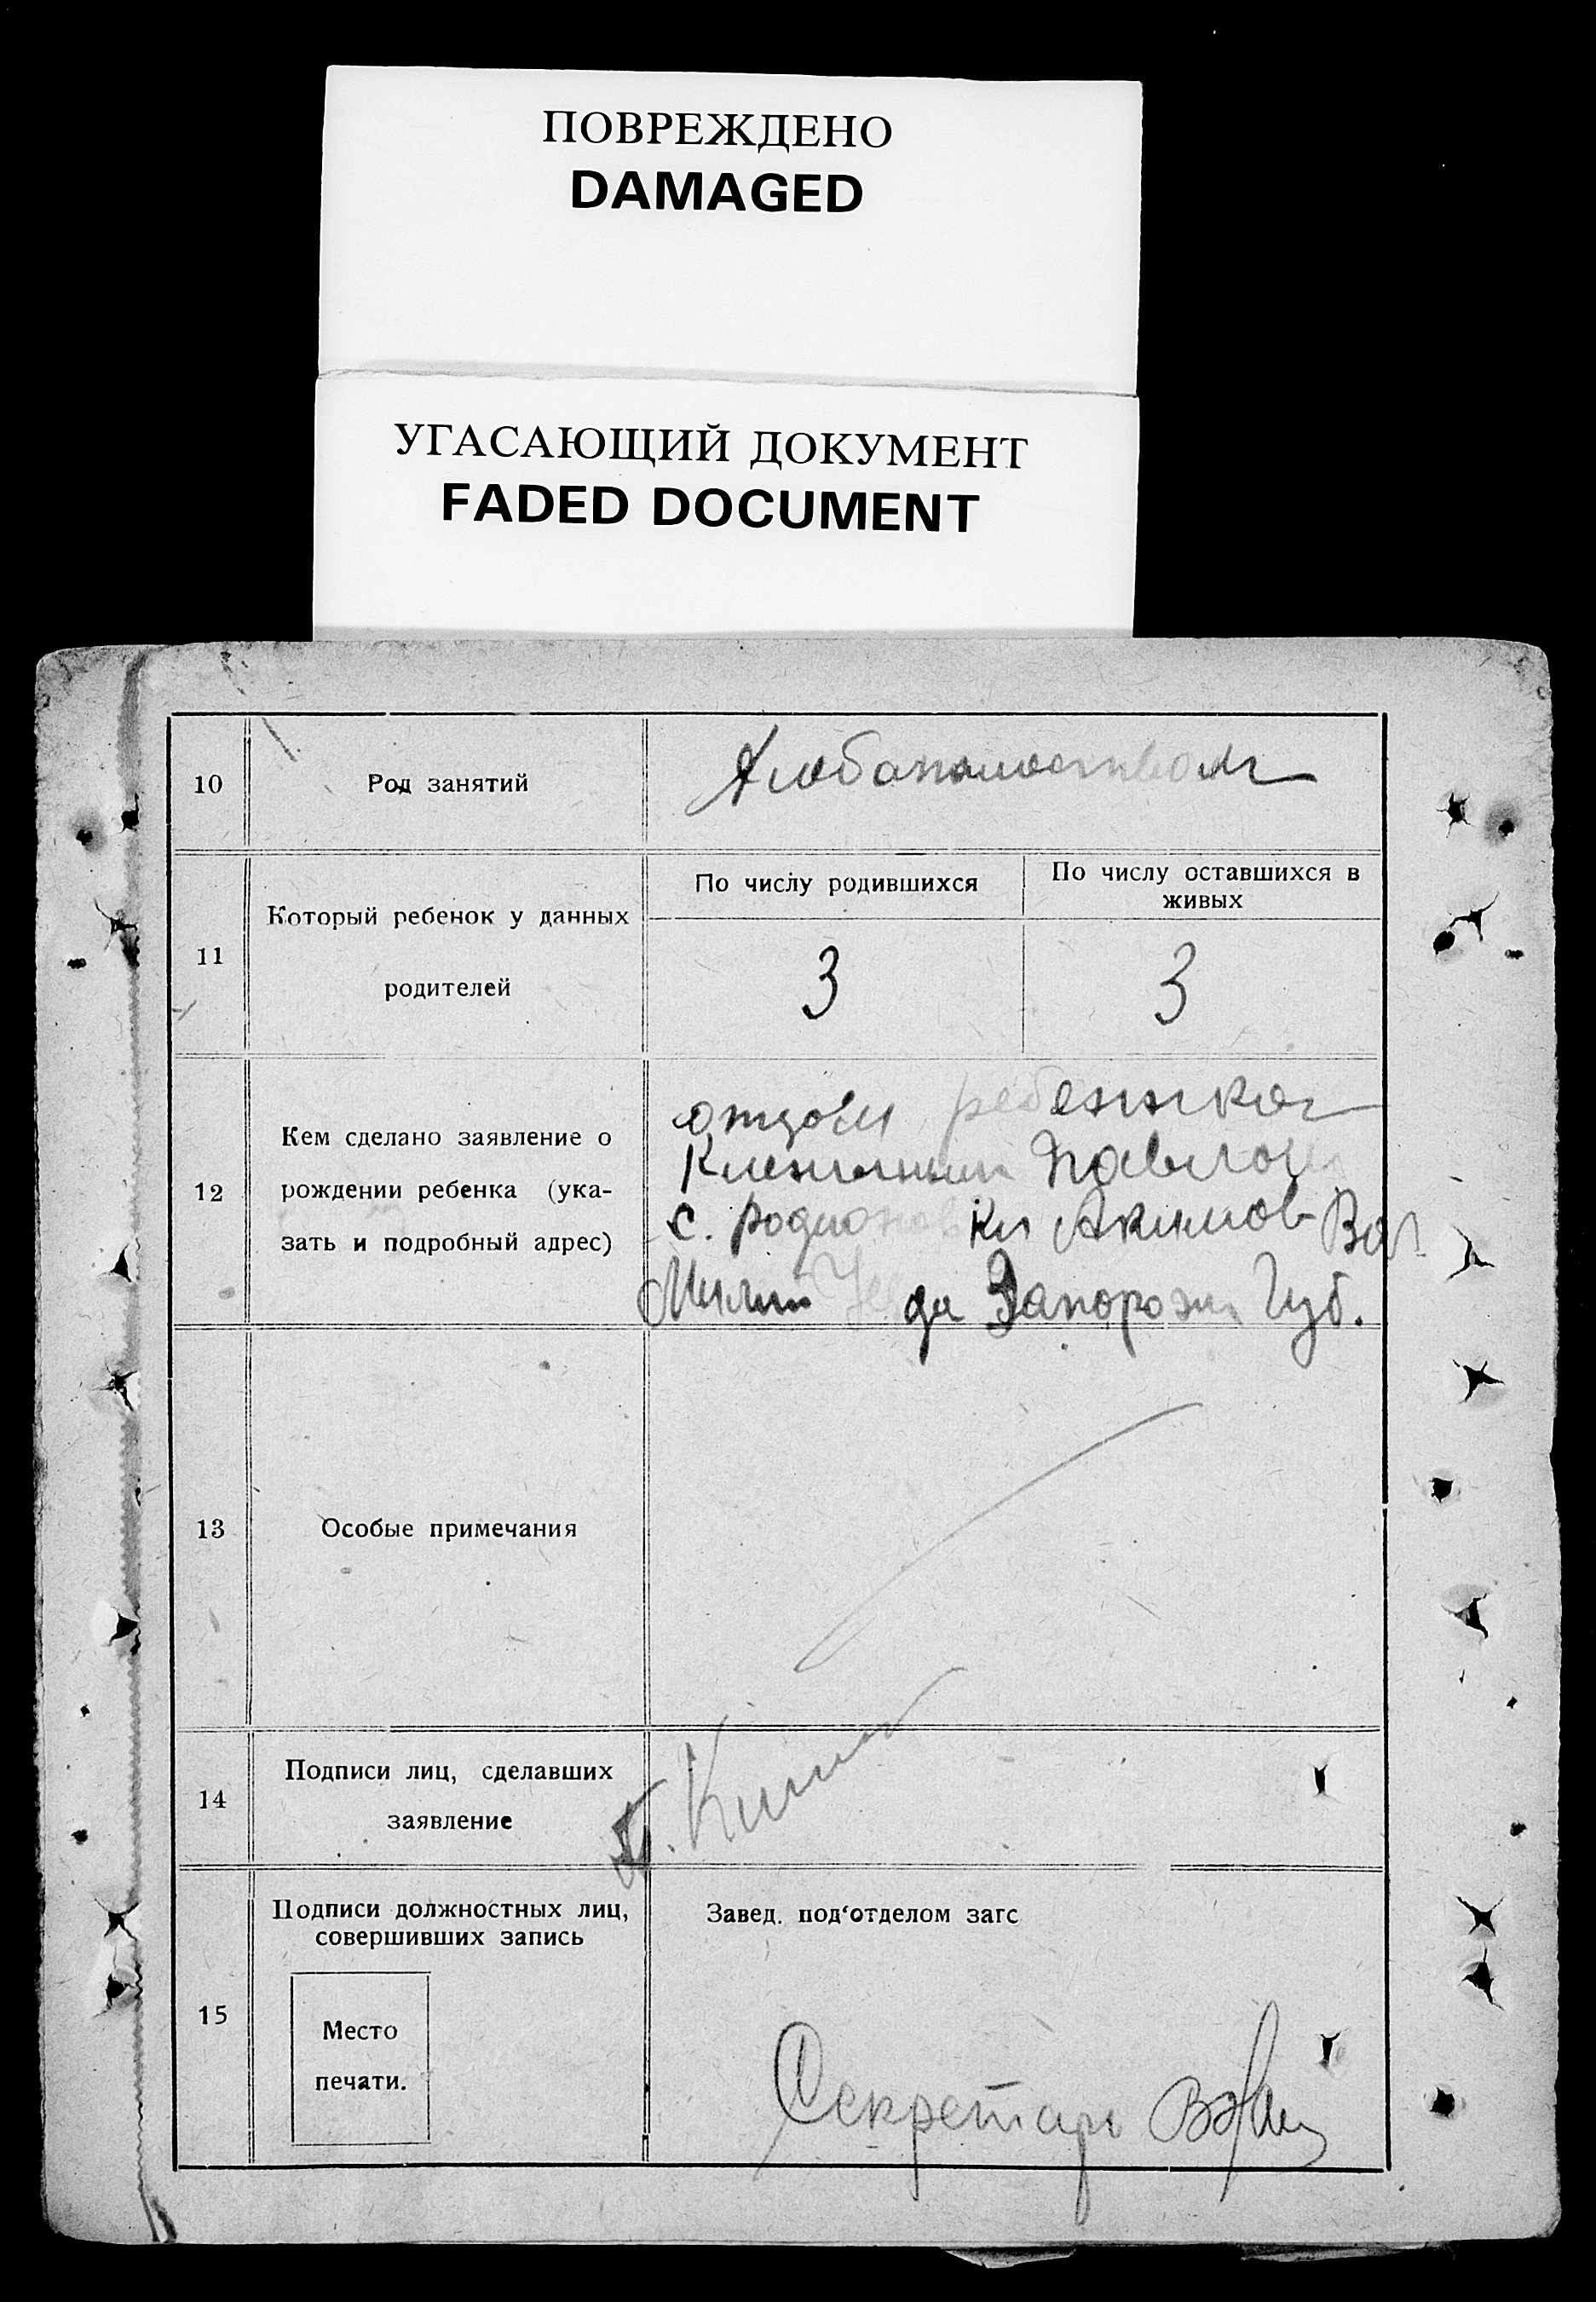 ПОВРЕЖДЕНО
DAMAGED
УГАСАЮЩИЙ ДОКУМЕНТ
FADED DOCUMENT
10
Род занятий
11
Который ребенок у данных
родителей
По числу родившихся
По числу оставшихся в
живых
3
3
12
Кем сделано заявление о
рождении ребенка (ука-
зать и подробный адрес)
отцом ребенка
Павлом
с. Родионовки Акимов Вол
Мелит Уезда Запорож Губ.
13
Особые примечания
14
Подписи лиц, сделавших
заявление
15
Подписи должностных лиц,
совершивших запись
Место
печати.
Завед. под'отделом загс
Секретарь